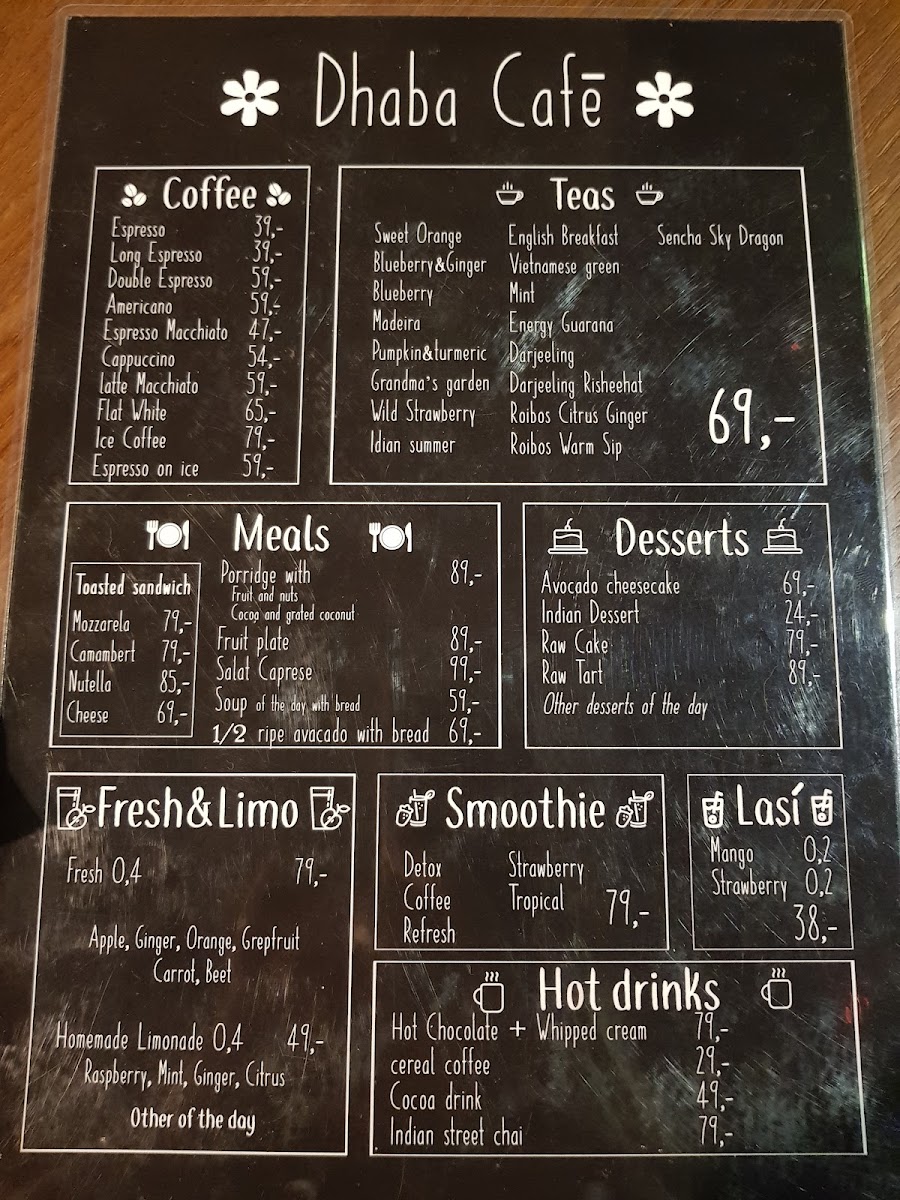 Dhaba Cafē
Coffee
Espresso 39,-
Long Espresso 39,-
Double Espresso 59,-
Americano 59,-
Espresso Macchiato 47,-
Cappuccino 54,-
latte Macchiato 59,-
Flat White 65,-
Ice Coffee 79,-
Espresso on ice 59,-
Teas
Sweet Orange English Breakfast Sencha Sky Dragon
Blueberry&Ginger Vietnamese green
Blueberry Mint
Madeira Energy Guarana
Pumpkin&turmeric Darjeeling
Grandma's garden Darjeeling Risheehat
Wild Strawberry Roibos Citrus Ginger
Idian summer Roibos Warm Sip
69,-
Meals
Toasted sandwich
Mozzarela 79,-
Camambert 79,-
Nutella 85,-
Cheese 69,-
Porridge with 89,-
Fruit and nuts
Cocoa and grated coconut
Fruit plate 89,-
Salat Caprese 99,-
Soup of the day with bread 59,-
1/2 ripe avacado with bread 69,-
Desserts
Avocado cheesecake 69,-
Indian Dessert 24,-
Raw Cake 79,-
Raw Tart 89,-
Other desserts of the day
Fresh&Limo
Fresh 0,4 79,-
Apple, Ginger, Orange, Grepfruit
Carrot, Beet
Homemade Limonade 0,4 49,-
Raspberry, Mint, Ginger, Citrus
Other of the day
Smoothie
Detox Strawberry
Coffee Tropical
Refresh
79,-
Lasí
Mango 0,2
Strawberry 0,2
38,-
Hot drinks
Hot Chocolate + Whipped cream 79,-
cereal coffee 29,-
Cocoa drink 49,-
Indian street chai 79,-